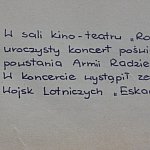 W sali kino-teatru „Ro
uroczysty koncert poświ
powstania Armii Radzie
W koncercie wystąpił ze
Wojsk Lotniczych „Eska